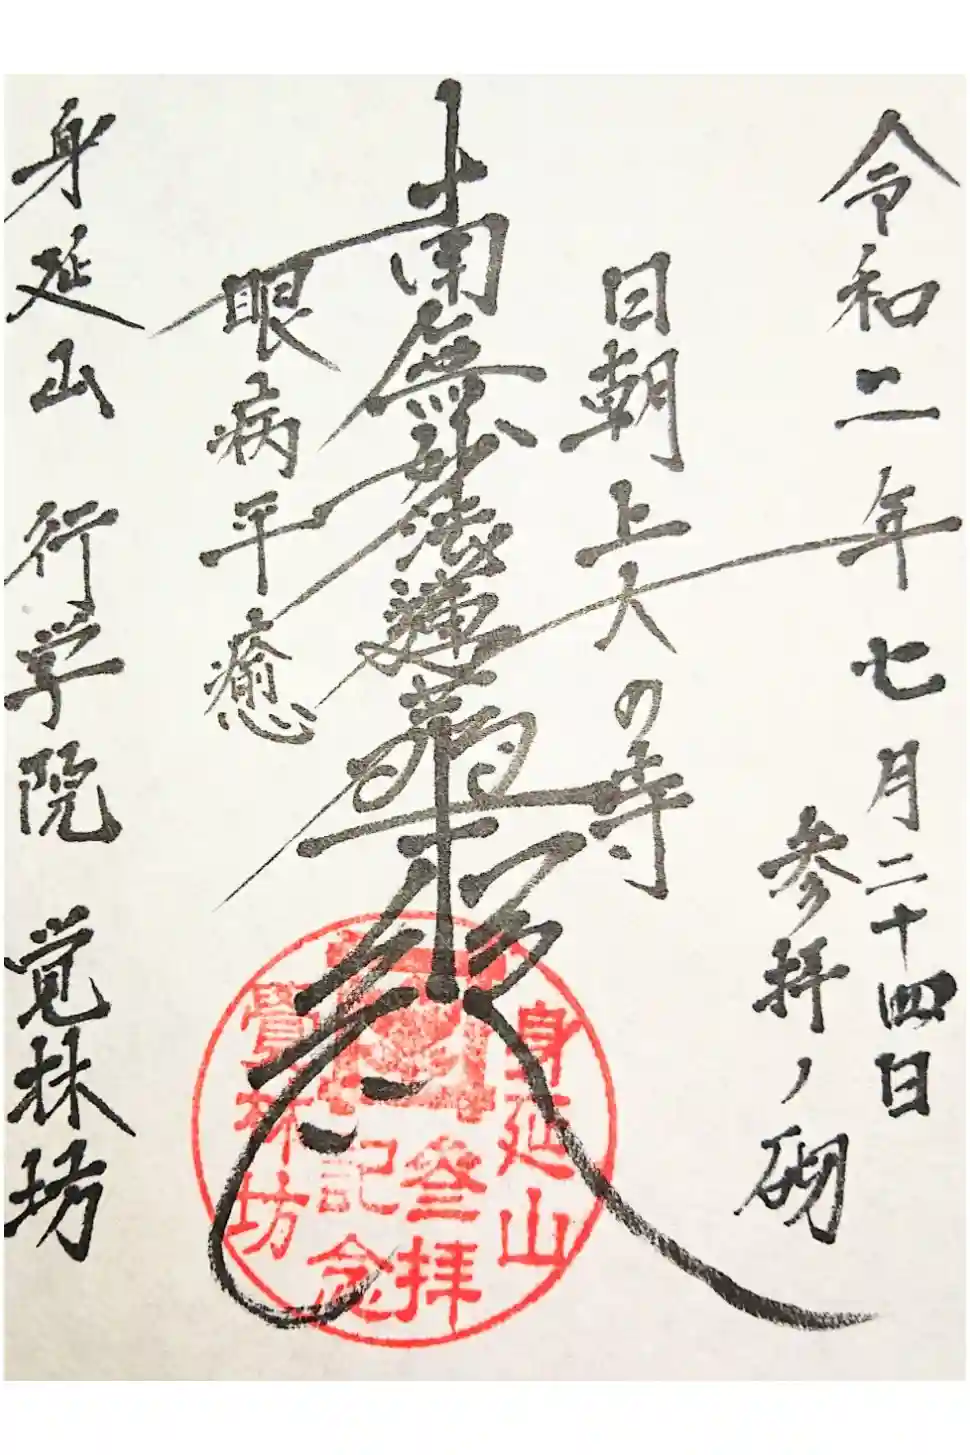 令和二年七月二十四日
参拝ノ砌
日朝上人の寺
南無妙法蓮華経
眼病平癒
身延山 行学院 覚林坊
身延山
叄拝
記念
覺林坊